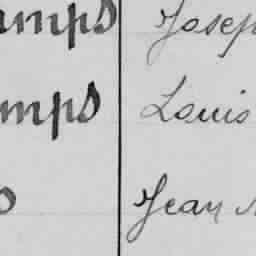 amps Joseph
mps Louis
Jean